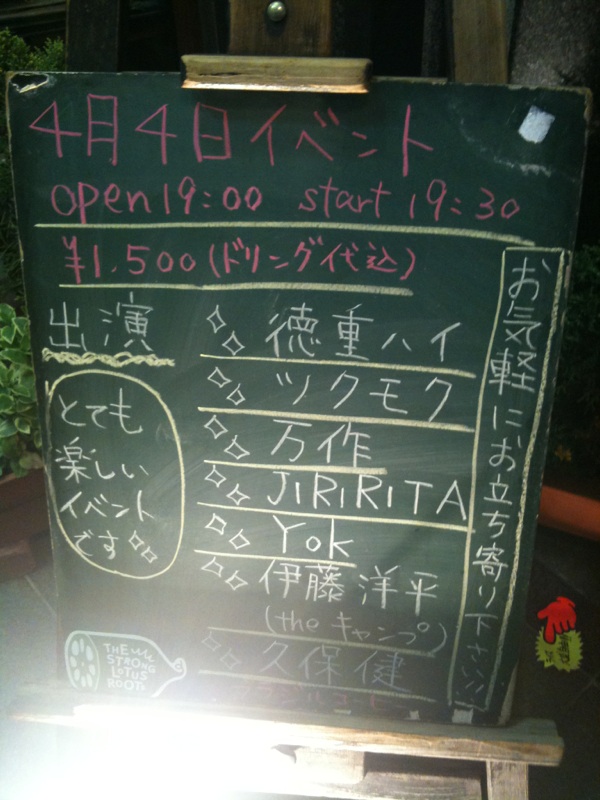 4月4日イベント
open 19:00 start 19:30
¥1.500(ドリング代込)
お気軽にお立ち寄り下さい
出演
とても
楽しい
イベント
です
徳重ハイ
ツクモク
万作
JIRIRITA
Yok
伊藤洋平
(the キャンプ)
久保健
THE
STRONG
LOTUS
ROOT